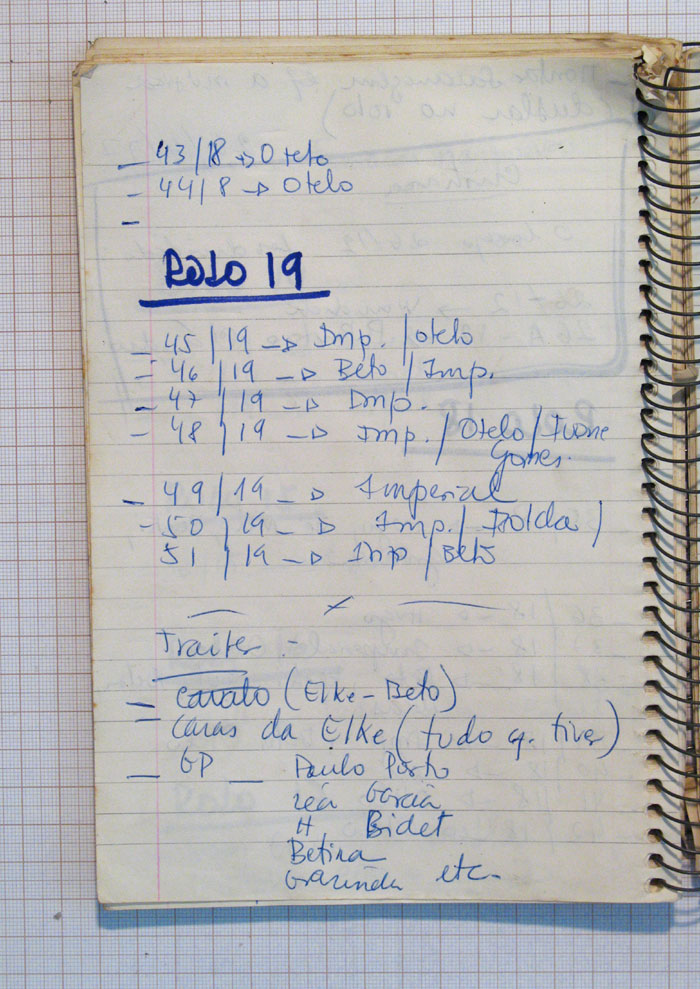 - 43/18 → Otelo
- 44/8 → Otelo
-
ROLO 19
- 45/19 → Imp./Otelo
- 46/19 → Beto/Imp.
- 47/19 → Imp.
- 48/19 → Imp./Otelo/Ivone
Gomes.
- 49/19 → Imperial
- 50/19 → Imp./Isolda/
51/19 → Imp/Beto
Trailer -
= cavalo (Elke-Beto)
caras da Elke (tudo q. tiver)
- GP — Paulo Porto
Léa Garcia
H. Bidet
Betina
etc.